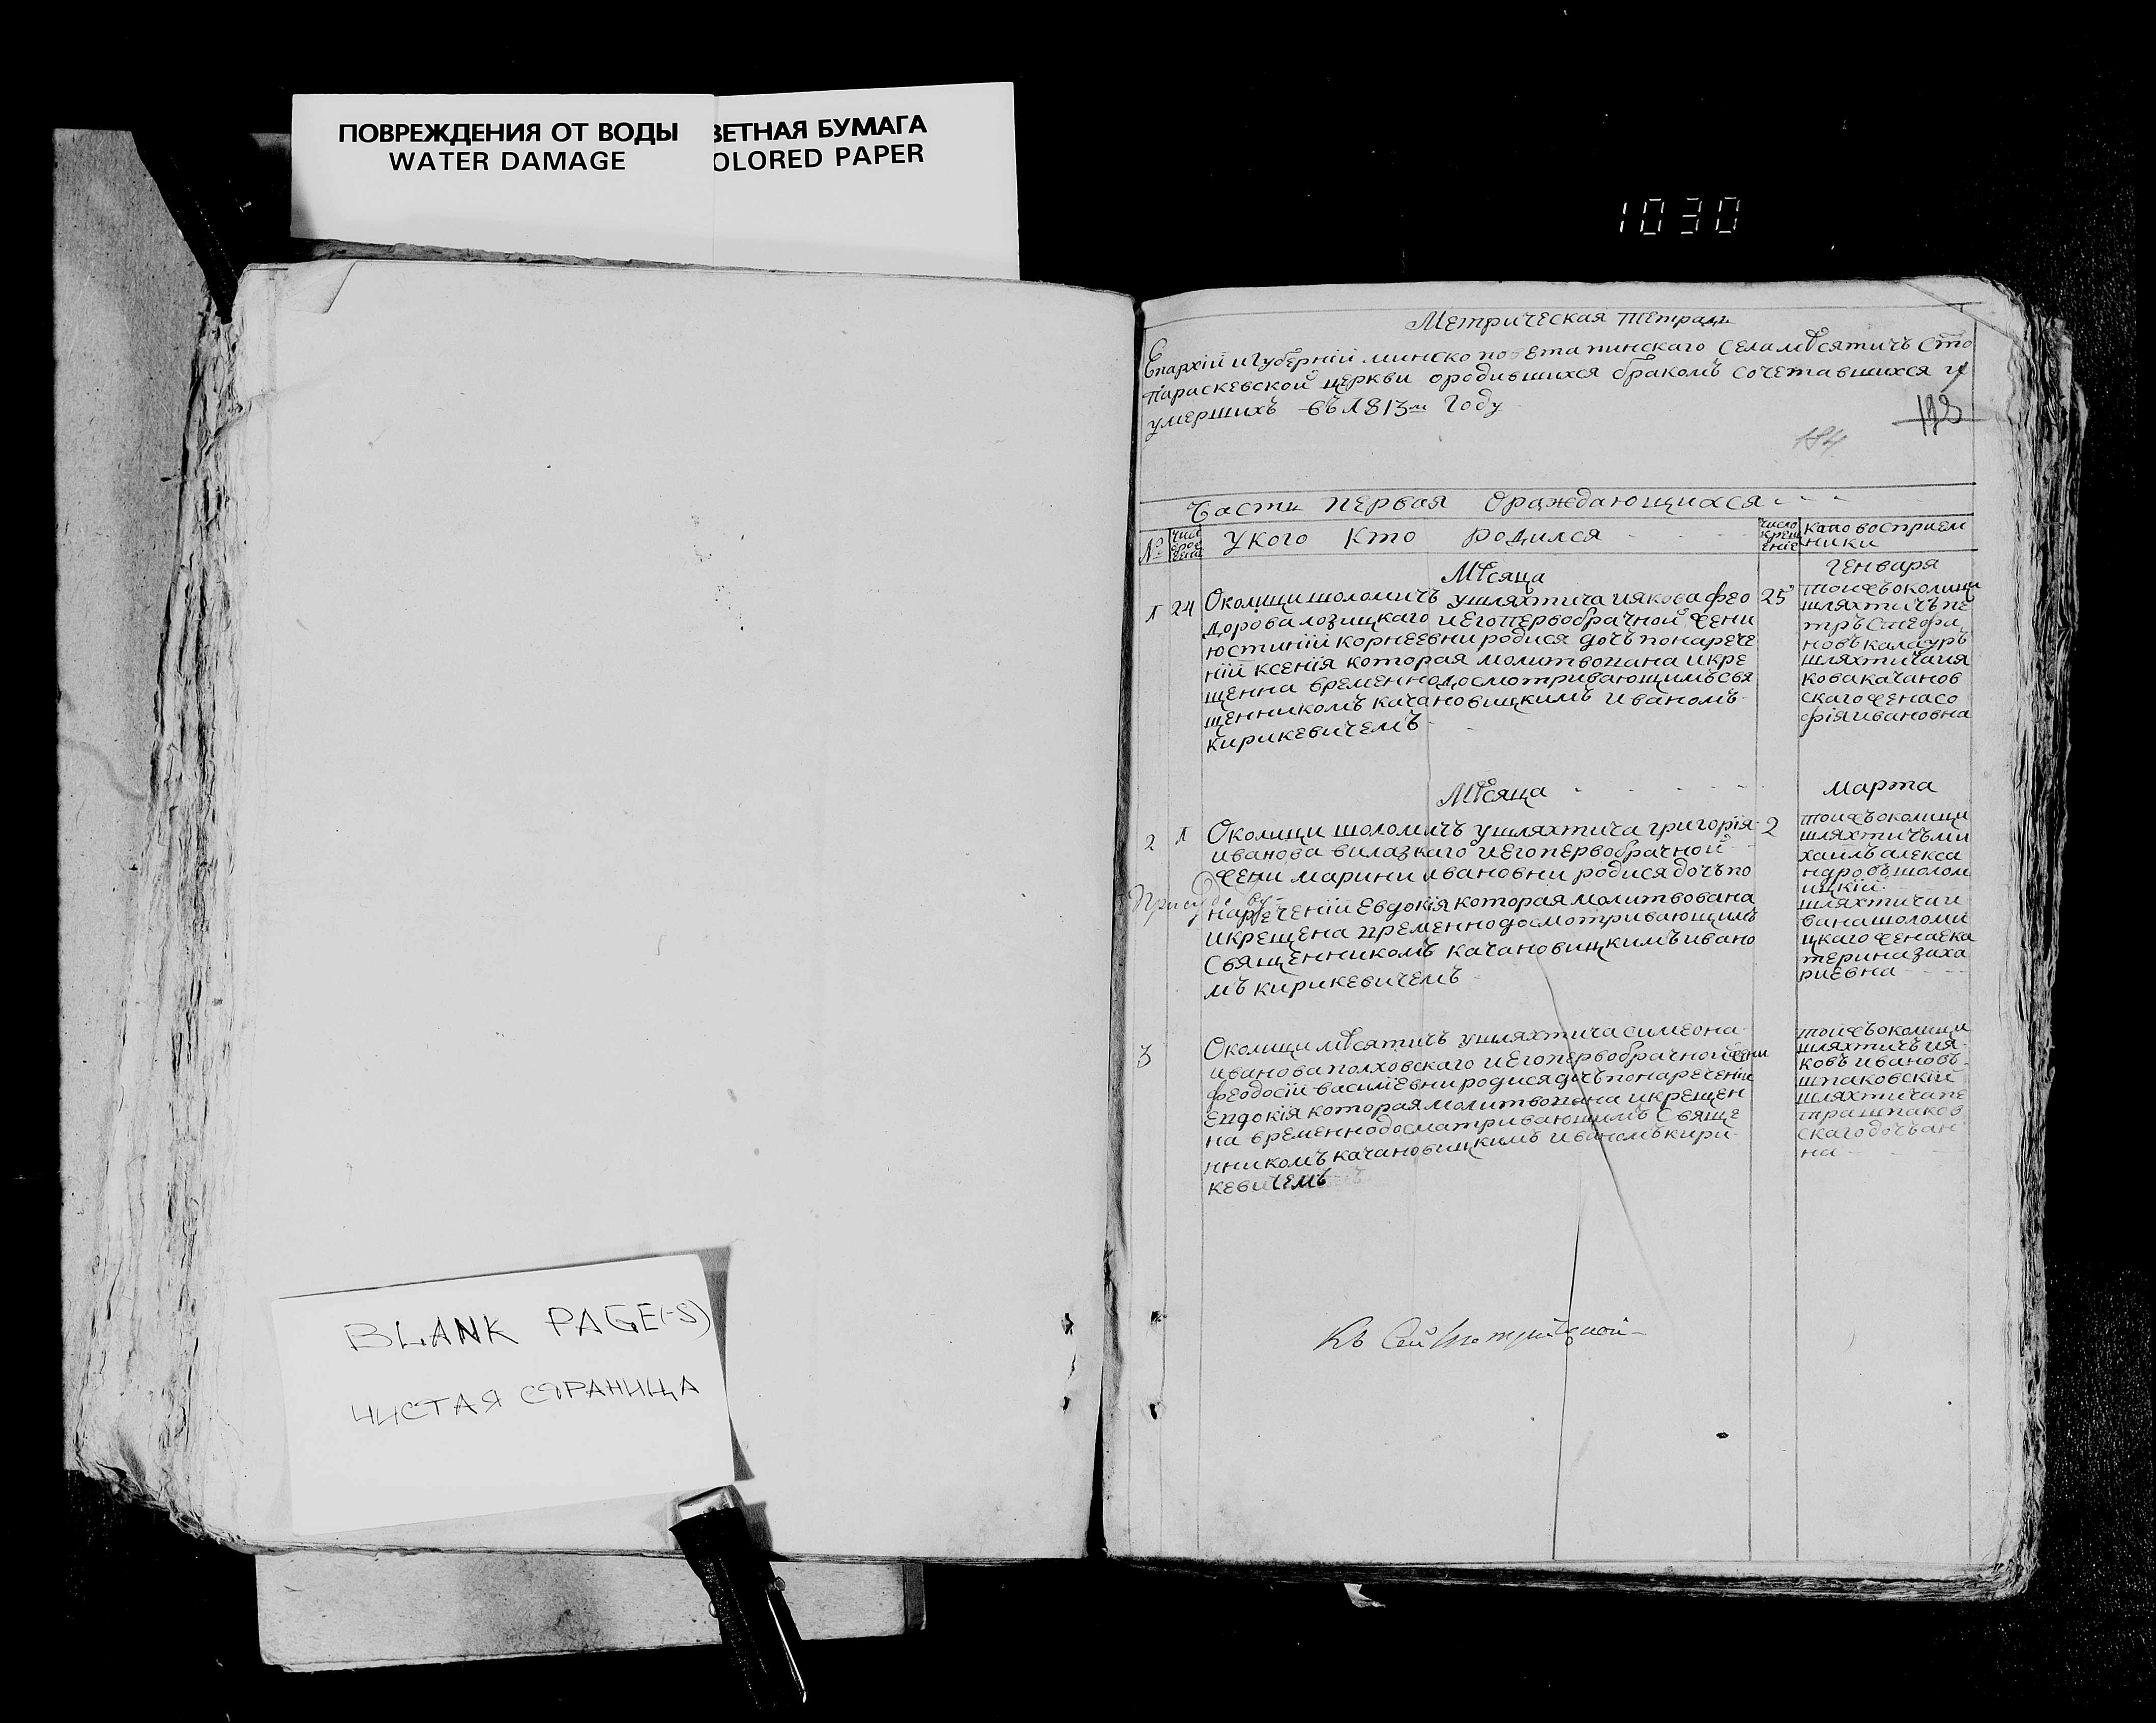 ПОВРЕЖДЕНИЯ ОТ ВОДЫ
WATER DAMAGE
ВЕТНАЯ БУМАГА
OLORED PAPER
1030
BLANK PAGE(-S)
ЧИСТАЯ СТРАНИЦА
Метрическая тетрадь
Епархій и Губерніи минско повета пинскаго села мѣсятичъ Сто
Параскевской церкви ородившихся бракомъ сочетавшихся и
умершихъ въ 1813м Году
184
Часть первая Ораждающихся
№ числ рожд ения У кого Кто родился число крещ еніе Кто восприем
ники
Мѣсяца Генваря
1 24 Околици шоломичъ ушляхтича иякова фео 25
дорова лозицкаго иегопервобрачной жени
юстиніи корнеевни родися дочъ понарече
ніи ксенія которая молитвована икре
щенна временнодосмотривающимъ свя
щенникомъ качановицкимъ Иваномъ
кирикевичемъ
тоижъ околици
шляхтичъ пе
тръ стефа
новъ калауръ
шляхтича ия
кова качанов
скаго жена со
фія ивановна
Мѣсяца Марта
2 1 Околици шоломичъ ушляхтича григорія 2
иванова вилазкаго иегопервобрачной
жени марини ивановни родися дочъ по
нареченіи Евдокія которая молитвована
икрещена временнодосмотривающимъ
Священникомъ качановицкимъ ивано
мъ кирикевичемъ
тоижъ околици
шляхтичъ ми
хаилъ алекса
ндровъ шолом
ицкій
шляхтича и
вана шоломи
цкаго жена ека
терина заха
риевна
3 Околици мѣсятичъ ушляхтича симеона
иванова полховскаго иегопервобрачной жени
феодосіи василиевни родися дочъ понареченіи
Евдокія которая молитвована икрещен
на временнодосматривающимъ Свяще
нникомъ качановицкимъ иваномъ кири
кевичемъ
тоижъ околици
шляхтичъ ия
ковъ ивановъ
шпаковскій
шляхтича пе
тра шпаков
скаго дочъ ан
на
Къ Сей Метрической